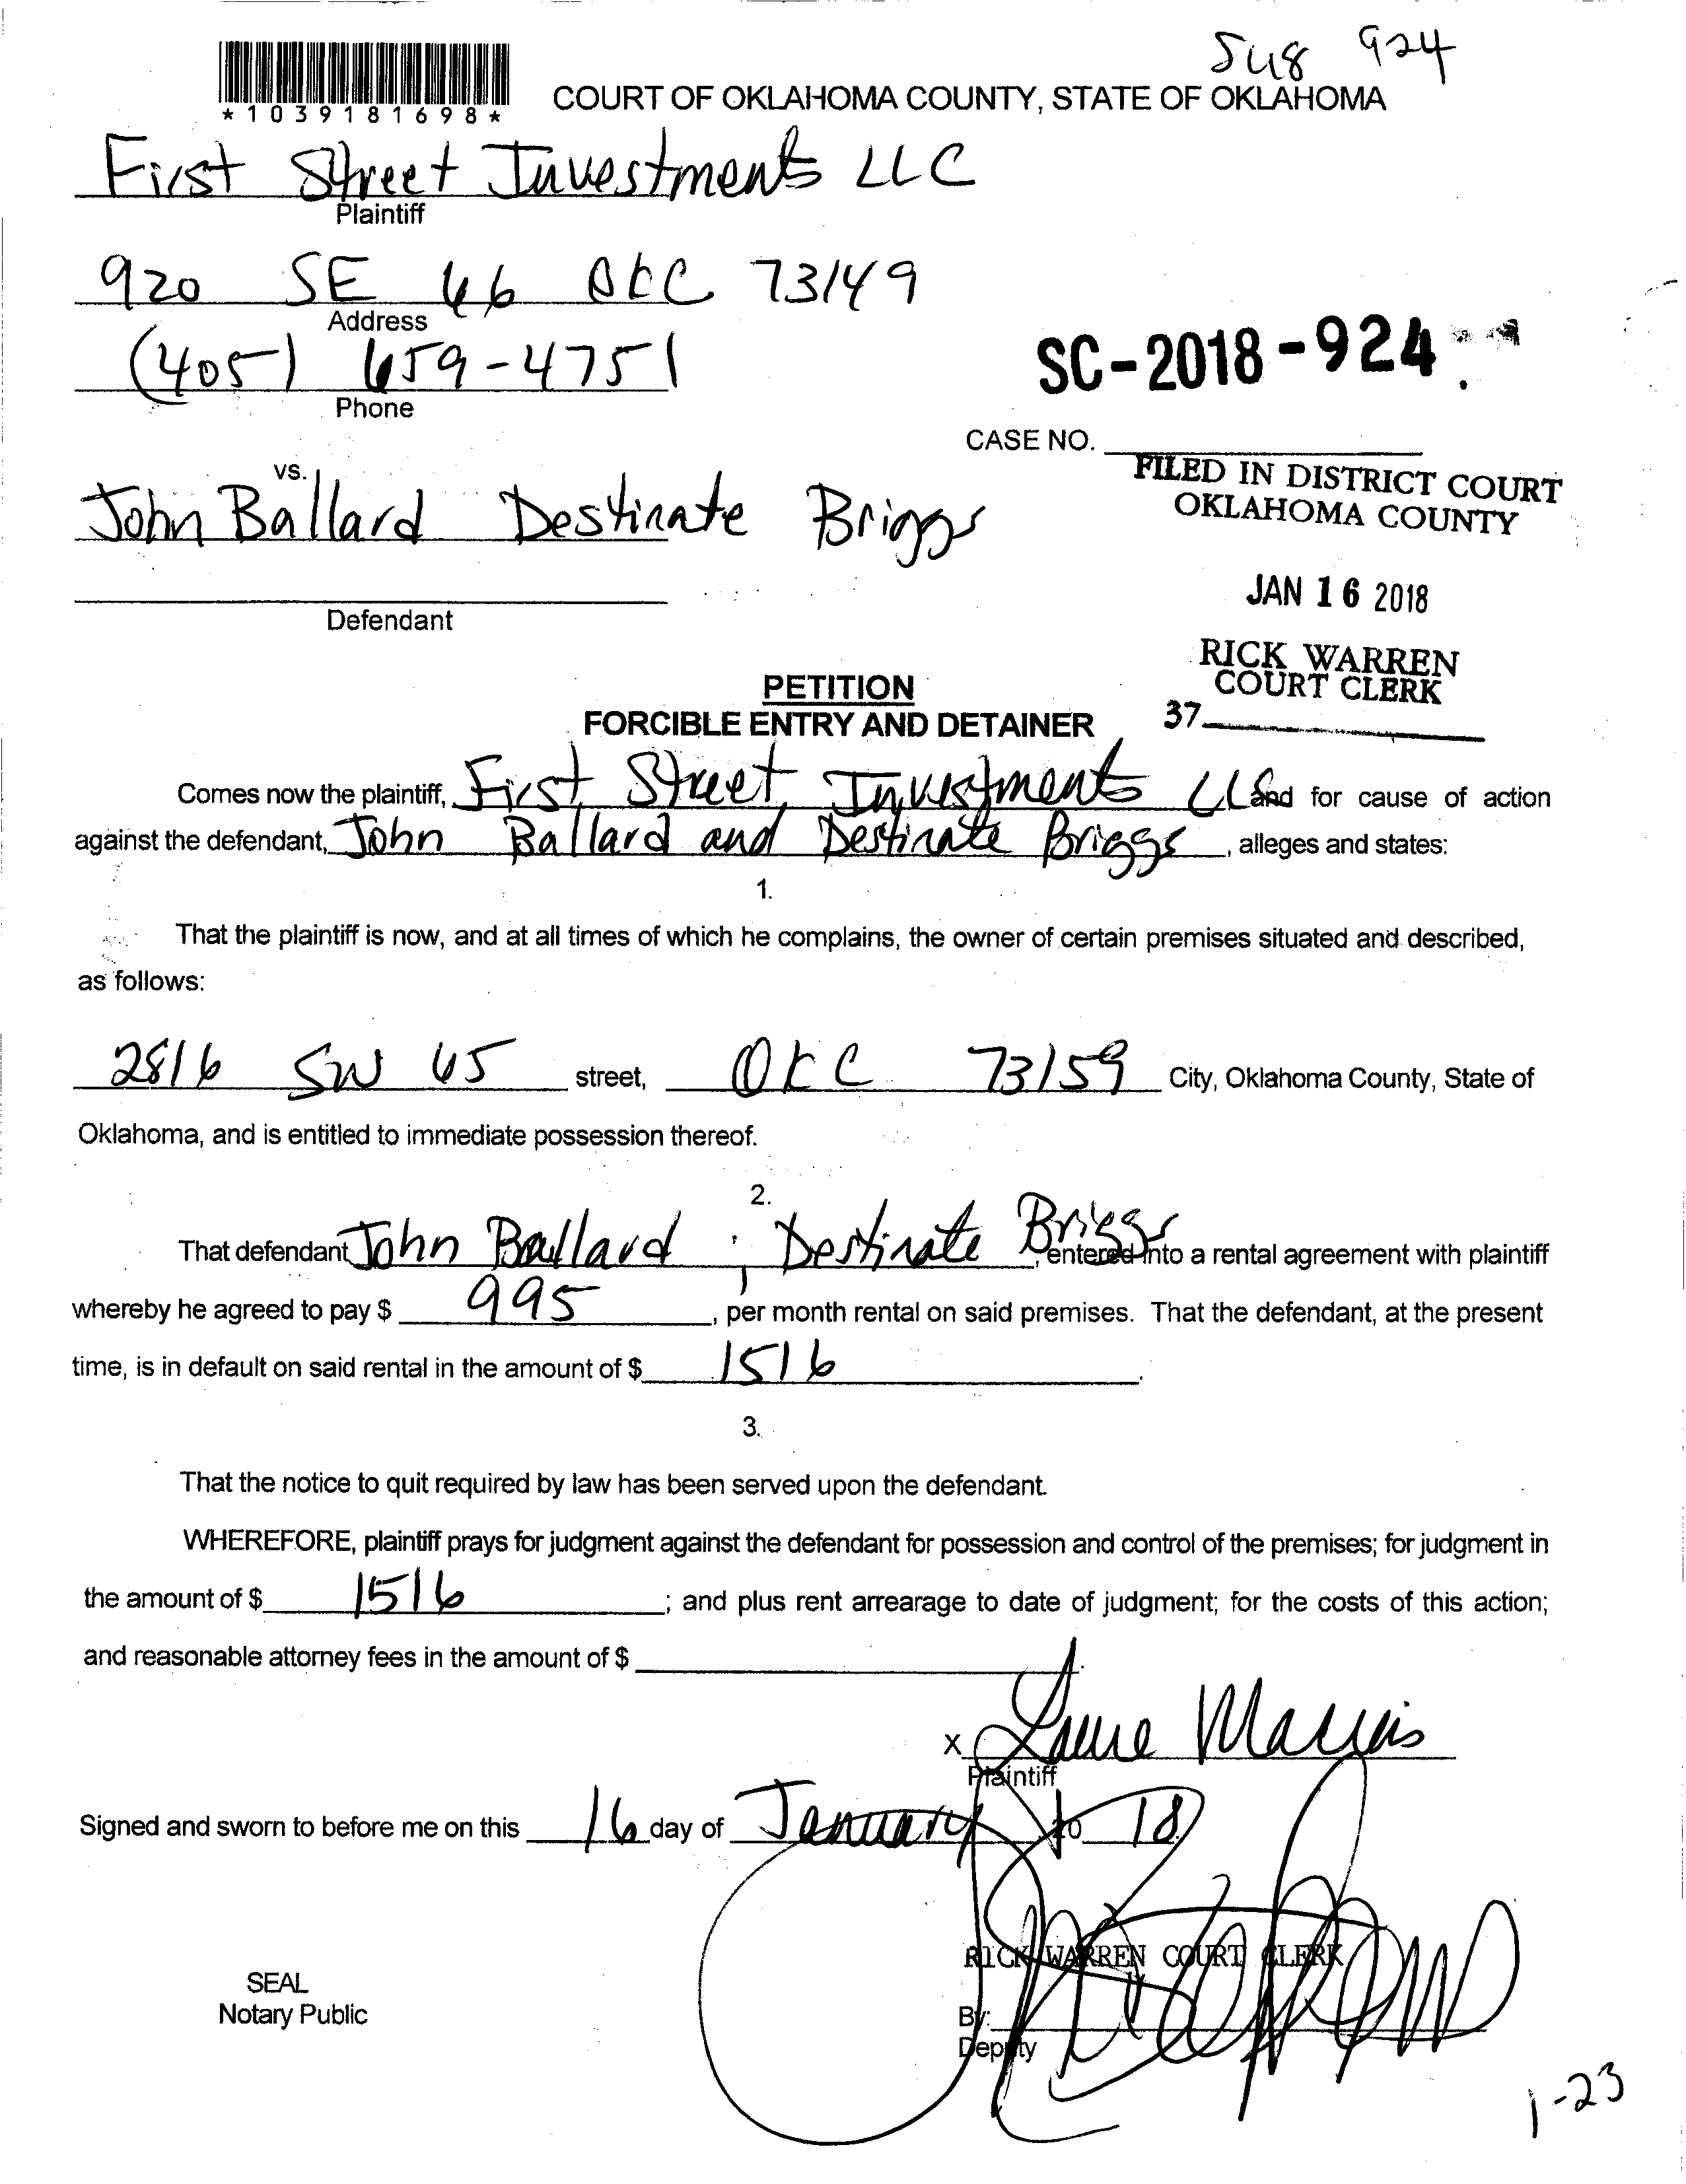 548 924
*1039181698*
COURT OF OKLAHOMA COUNTY, STATE OF OKLAHOMA
First Street Investments LLC
Plaintiff
920 SE 66 OKC 73149
Address
(405) 659-4751
Phone
SC-2018-924
CASE NO.
FILED IN DISTRICT COURT
OKLAHOMA COUNTY
vs.
John Ballard Destinate Briggs
Defendant
JAN 16 2018
RICK WARREN
COURT CLERK
37
PETITION
FORCIBLE ENTRY AND DETAINER
Comes now the plaintiff, First Street Investments LLC and for cause of action
against the defendant, John Ballard and Destinate Briggs, alleges and states:
1.
That the plaintiff is now, and at all times of which he complains, the owner of certain premises situated and described,
as follows:
2816 SW 65 street, OKC 73159 City, Oklahoma County, State of
Oklahoma, and is entitled to immediate possession thereof.
2.
That defendant John Ballard ; Destinate Briggs, entered into a rental agreement with plaintiff
whereby he agreed to pay $ 995, per month rental on said premises. That the defendant, at the present
time, is in default on said rental in the amount of $ 1516.
3.
That the notice to quit required by law has been served upon the defendant.
WHEREFORE, plaintiff prays for judgment against the defendant for possession and control of the premises; for judgment in
the amount of $ 1516; and plus rent arrearage to date of judgment; for the costs of this action;
and reasonable attorney fees in the amount of $
x
Plaintiff
Signed and sworn to before me on this 16 day of January, 20 18.
RICK WARREN COURT CLERK
SEAL
Notary Public
By:
Deputy
1-23